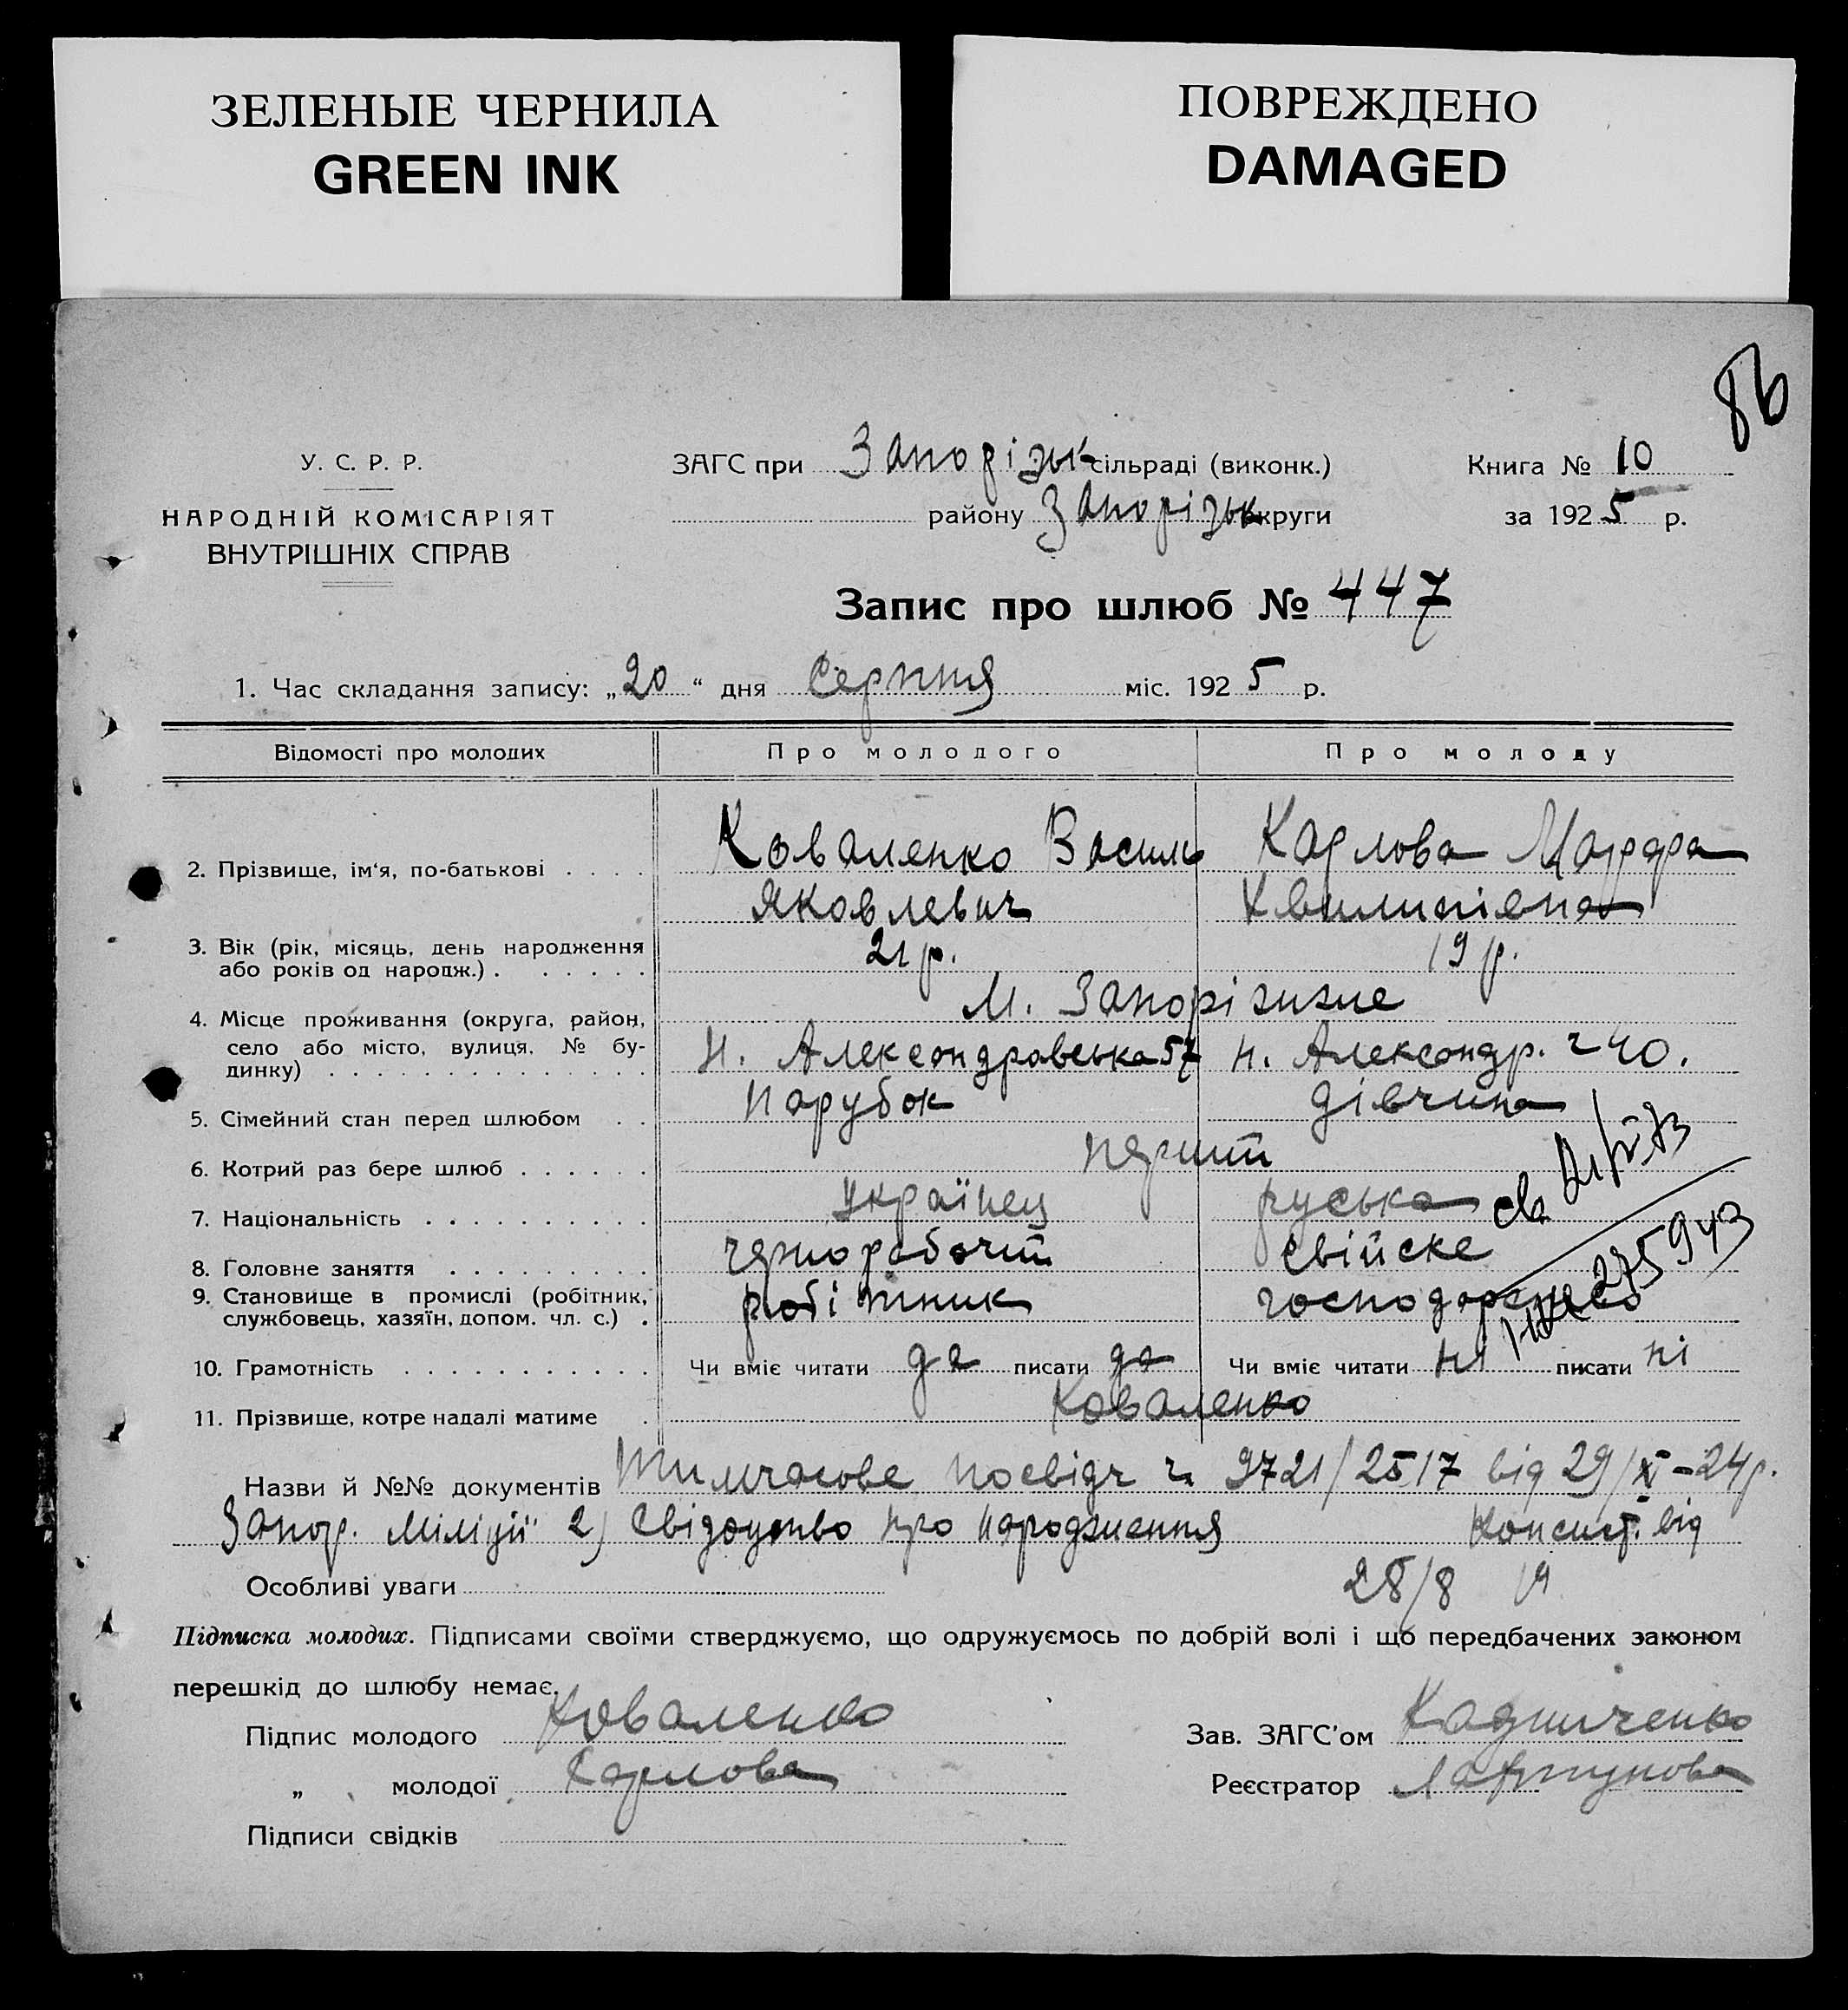 ЗЕЛЕНЫЕ ЧЕРНИЛА
GREEN INK
ПОВРЕЖДЕНО
DAMAGED
86
У. С. Р. Р.
НАРОДНІЙ КОМІСАРІЯТ
ВНУТРІШНІХ СПРАВ
ЗАГС при Запорізьк сільраді (виконк.)
району Запорізьк округи
Книга № 10
за 1925 р.
Запис про шлюб № 447
1. Час складання запису: „20“ дня Серпня міс. 1925 р.
Відомості про молодих Про молодого Про молоду
2. Прізвище, ім'я, по-батькові . . . . Коваленко Василь Карлова Марфа
Яковлевич Хвилипівна
3. Вік (рік, місяць, день народження
або років од народж.) . . . . . . 21 р. 19 р.
М. Запоріжже
4. Місце проживання (округа, район,
село або місто, вулиця, № бу-
динку) . . . . . . . . . . . . . Н. Александравська 57 Н. Александр. 240.
5. Сімейний стан перед шлюбом . . Парубок дівчина
6. Котрий раз бере шлюб . . . . . . перший
7. Національність . . . . . . . . . . Українец руська
8. Головне заняття . . . . . . . . . чернорабочий свійске
9. Становище в промислі (робітник,
службовець, хазяїн, допом. чл. с.) . робітник господарство
св
275943
10. Грамотність . . . . . . . . . . . Чи вміє читати да писати да Чи вміє читати ні писати ні
11. Прізвище, котре надалі матиме . Коваленко
Назви й №№ документів Тимчасове посвідч ч. 9721/2517 від 29/XI–24р.
Запор. Міліції 2) Свідоцтво про народження Консист. від
Особливі уваги 28/8
Підписка молодих. Підписами своїми стверджуємо, що одружуємось по добрій волі і що передбачених законом
перешкід до шлюбу немає.
Підпис молодого Коваленко
„ молодої Карлова
Підписи свідків
Зав. ЗАГС'ом
Реєстратор